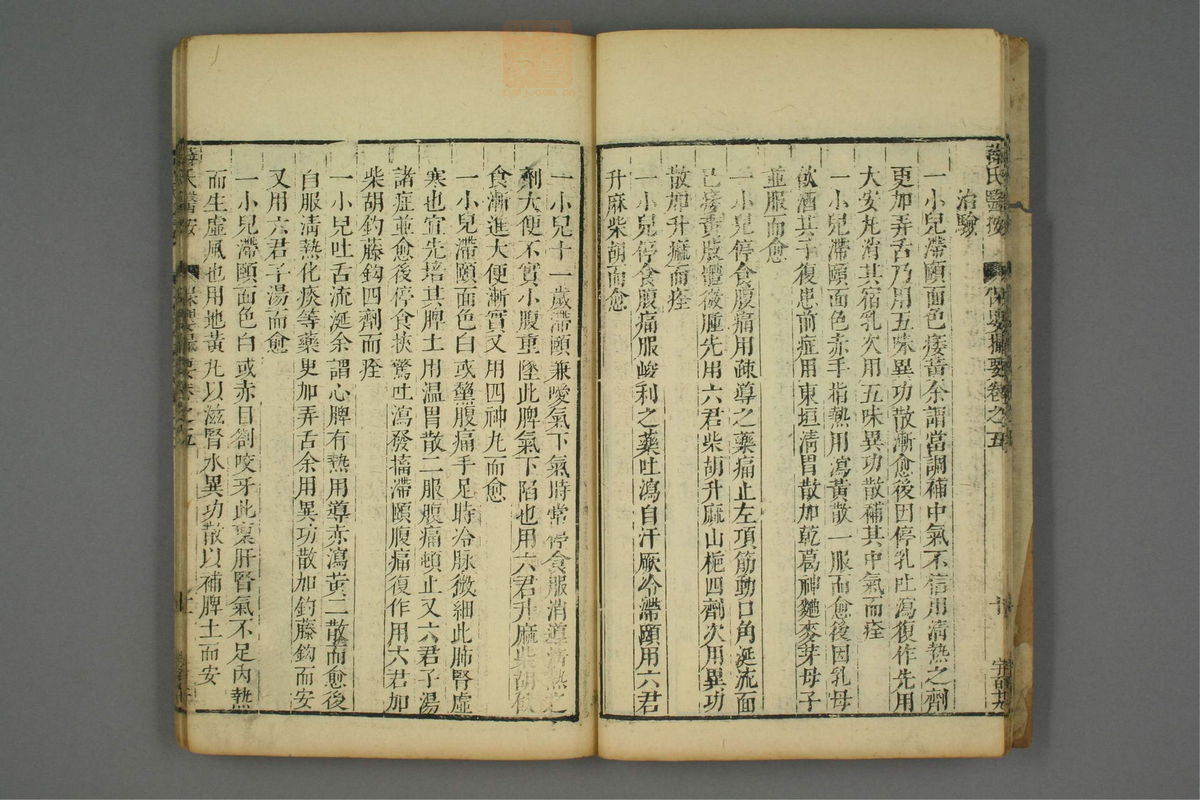 薛氏醫按 保嬰撮要卷之五 十
治驗
一小兒滯頤面色痿黃余謂當調補中氣不信用清熱之劑
更加弄舌乃用五味異功散漸愈後因停乳吐瀉復作先用
大安丸消其宿乳次用五味異功散補其中氣而痊
一小兒滯頤面色赤手指熱用瀉黃散一服而愈後因乳母
飲酒其子復患前症用東垣清胃散加乾葛神麯麥芽母子
並服而愈
一小兒停食腹痛用疎導之藥痛止左項筋動口角涎流面
已痿黃肢體微腫先用六君柴胡升麻山梔四劑次用異功
散加升麻而痊
一小兒停食腹痛服峻利之藥吐瀉自汗厥冷滯頤用六君
升麻柴胡而愈
一小兒十一歲滯頤兼噯氣下氣時常停食服消導清熱之
劑大便不實小腹重墜此脾氣下陷也用六君升麻柴胡
食漸進大便漸實又用四神丸而愈
一小兒滯頤面色白或黧腹痛手足時冷脉微細此肺腎虛
寒也宜先培其脾土用温胃散二服腹痛頓止又六君子湯
諸症並愈後停食挾驚吐瀉發搐滯頤腹痛復作用六君加
柴胡鈎藤鈎四劑而痊
一小兒吐舌流涎余謂心脾有熱用導赤瀉黃二散而愈後
自服清熱化痰等藥更加弄舌余用異功散加鈎藤鈎而安
又用六君子湯而愈
一小兒滯頤面色白或赤目劄咬牙此稟肝腎氣不足内熱
而生虛風也用地黃丸以滋腎水異功散以補脾土而安
薛氏醫按 保嬰撮要卷之五 十